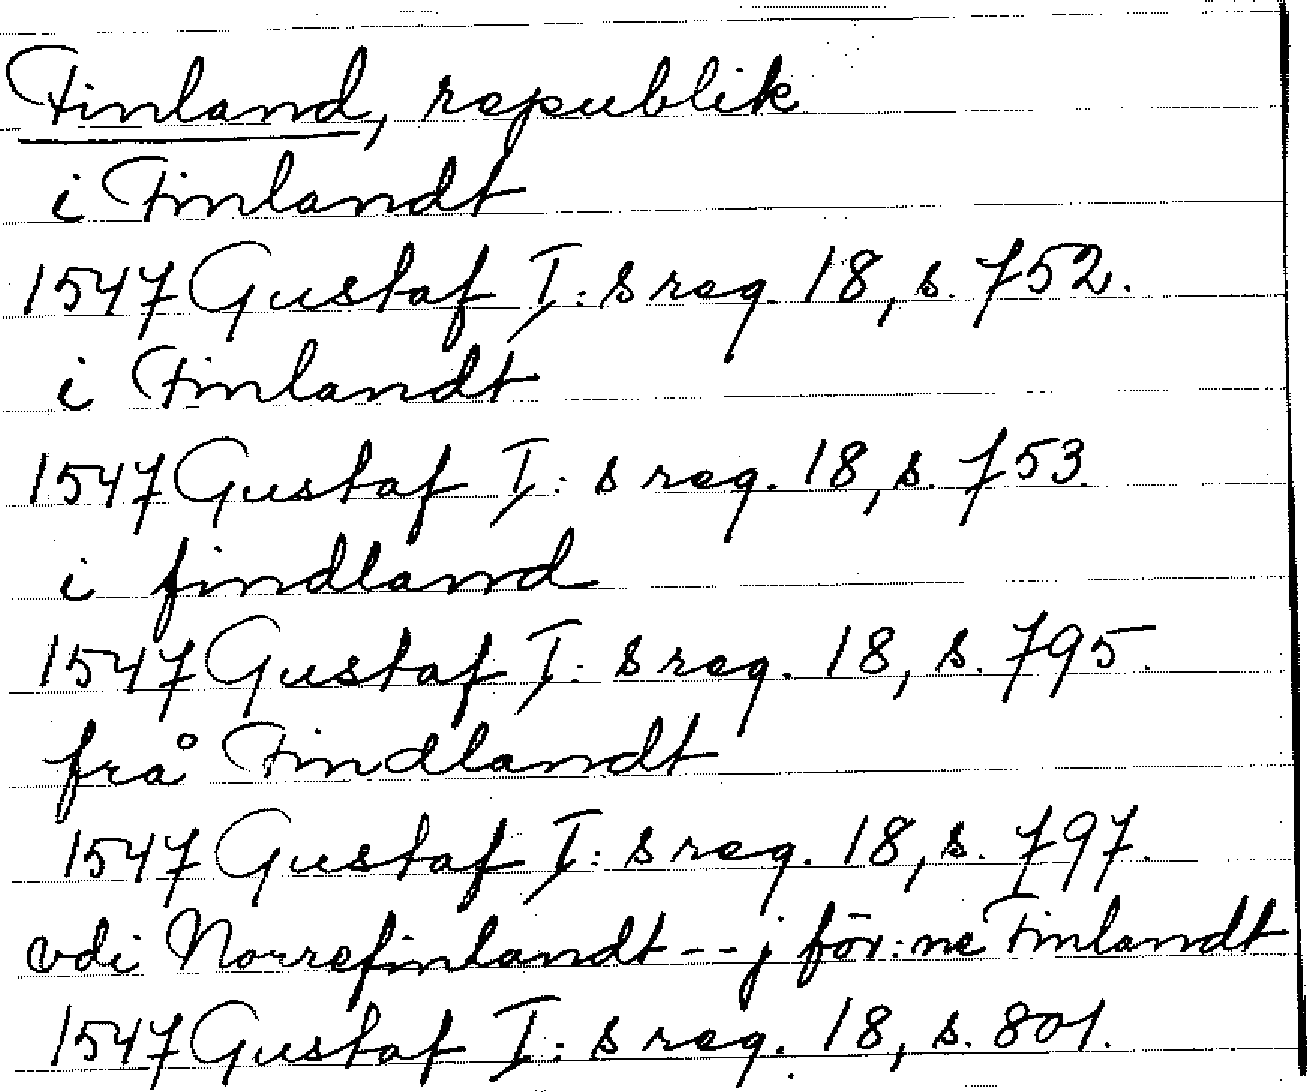 Finland, republik
i Finlandt
1547 Gustaf I: s reg. 18, s. 752.
i Finlandt
1547 Gustaf I: s reg. 18, s. 753.
i findland
1547 Gustaf I: s reg. 18, s. 795.
frå Findlandt
1547 Gustaf I: s reg. 18, s. 797.
vdi Norrefinlandt -- j för:ne Finlandt
1547 Gustaf I: s reg. 18, s. 801.